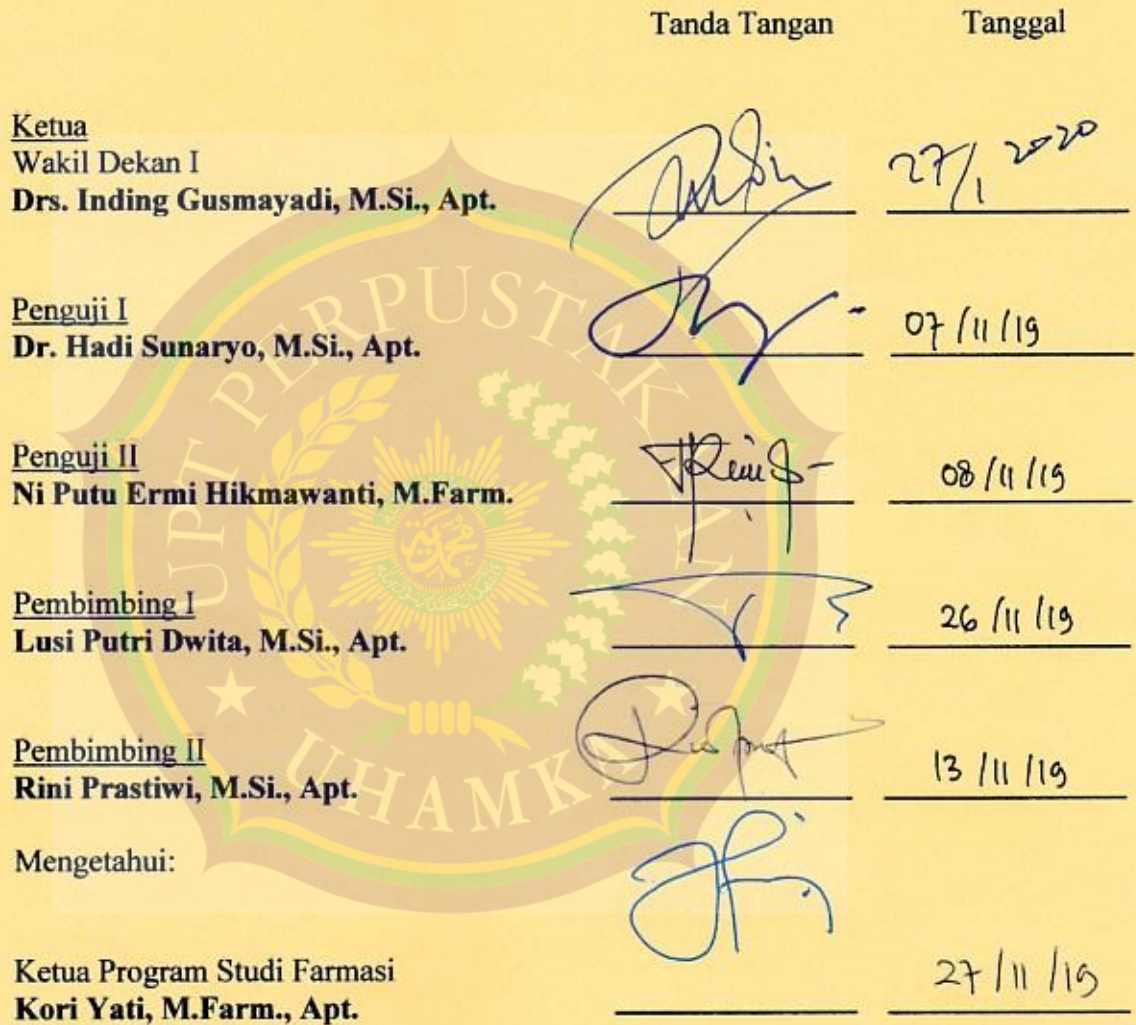 Tanda Tangan Tanggal
Ketua
Wakil Dekan I
Drs. Inding Gusmayadi, M.Si., Apt. 27/1 2020
Penguji I
Dr. Hadi Sunaryo, M.Si., Apt. 07/11/19
Penguji II
Ni Putu Ermi Hikmawanti, M.Farm. 08/11/19
Pembimbing I
Lusi Putri Dwita, M.Si., Apt. 26/11/19
Pembimbing II
Rini Prastiwi, M.Si., Apt. 13/11/19
Mengetahui:
Ketua Program Studi Farmasi
Kori Yati, M.Farm., Apt. 27/11/19
UPT PERPUSTAKAAN
UHAMKA